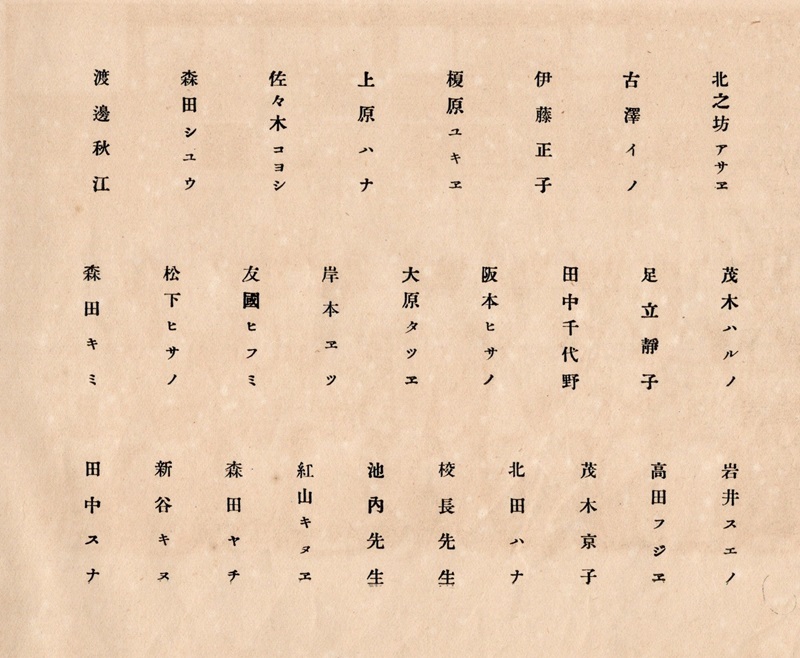 北之坊アサヱ
古澤イノ
伊藤正子
榎原ユキヱ
上原ハナ
佐々木コヨシ
森田シユウ
渡邊秋江
茂木ハルノ
足立靜子
田中千代野
阪本ヒサノ
大原タツヱ
岸本ヱツ
友國ヒフミ
松下ヒサノ
森田キミ
岩井スエノ
高田フジヱ
茂木京子
北田ハナ
校長先生
池內先生
紅山キヌヱ
森田ヤチ
新谷キヌ
田中スナ